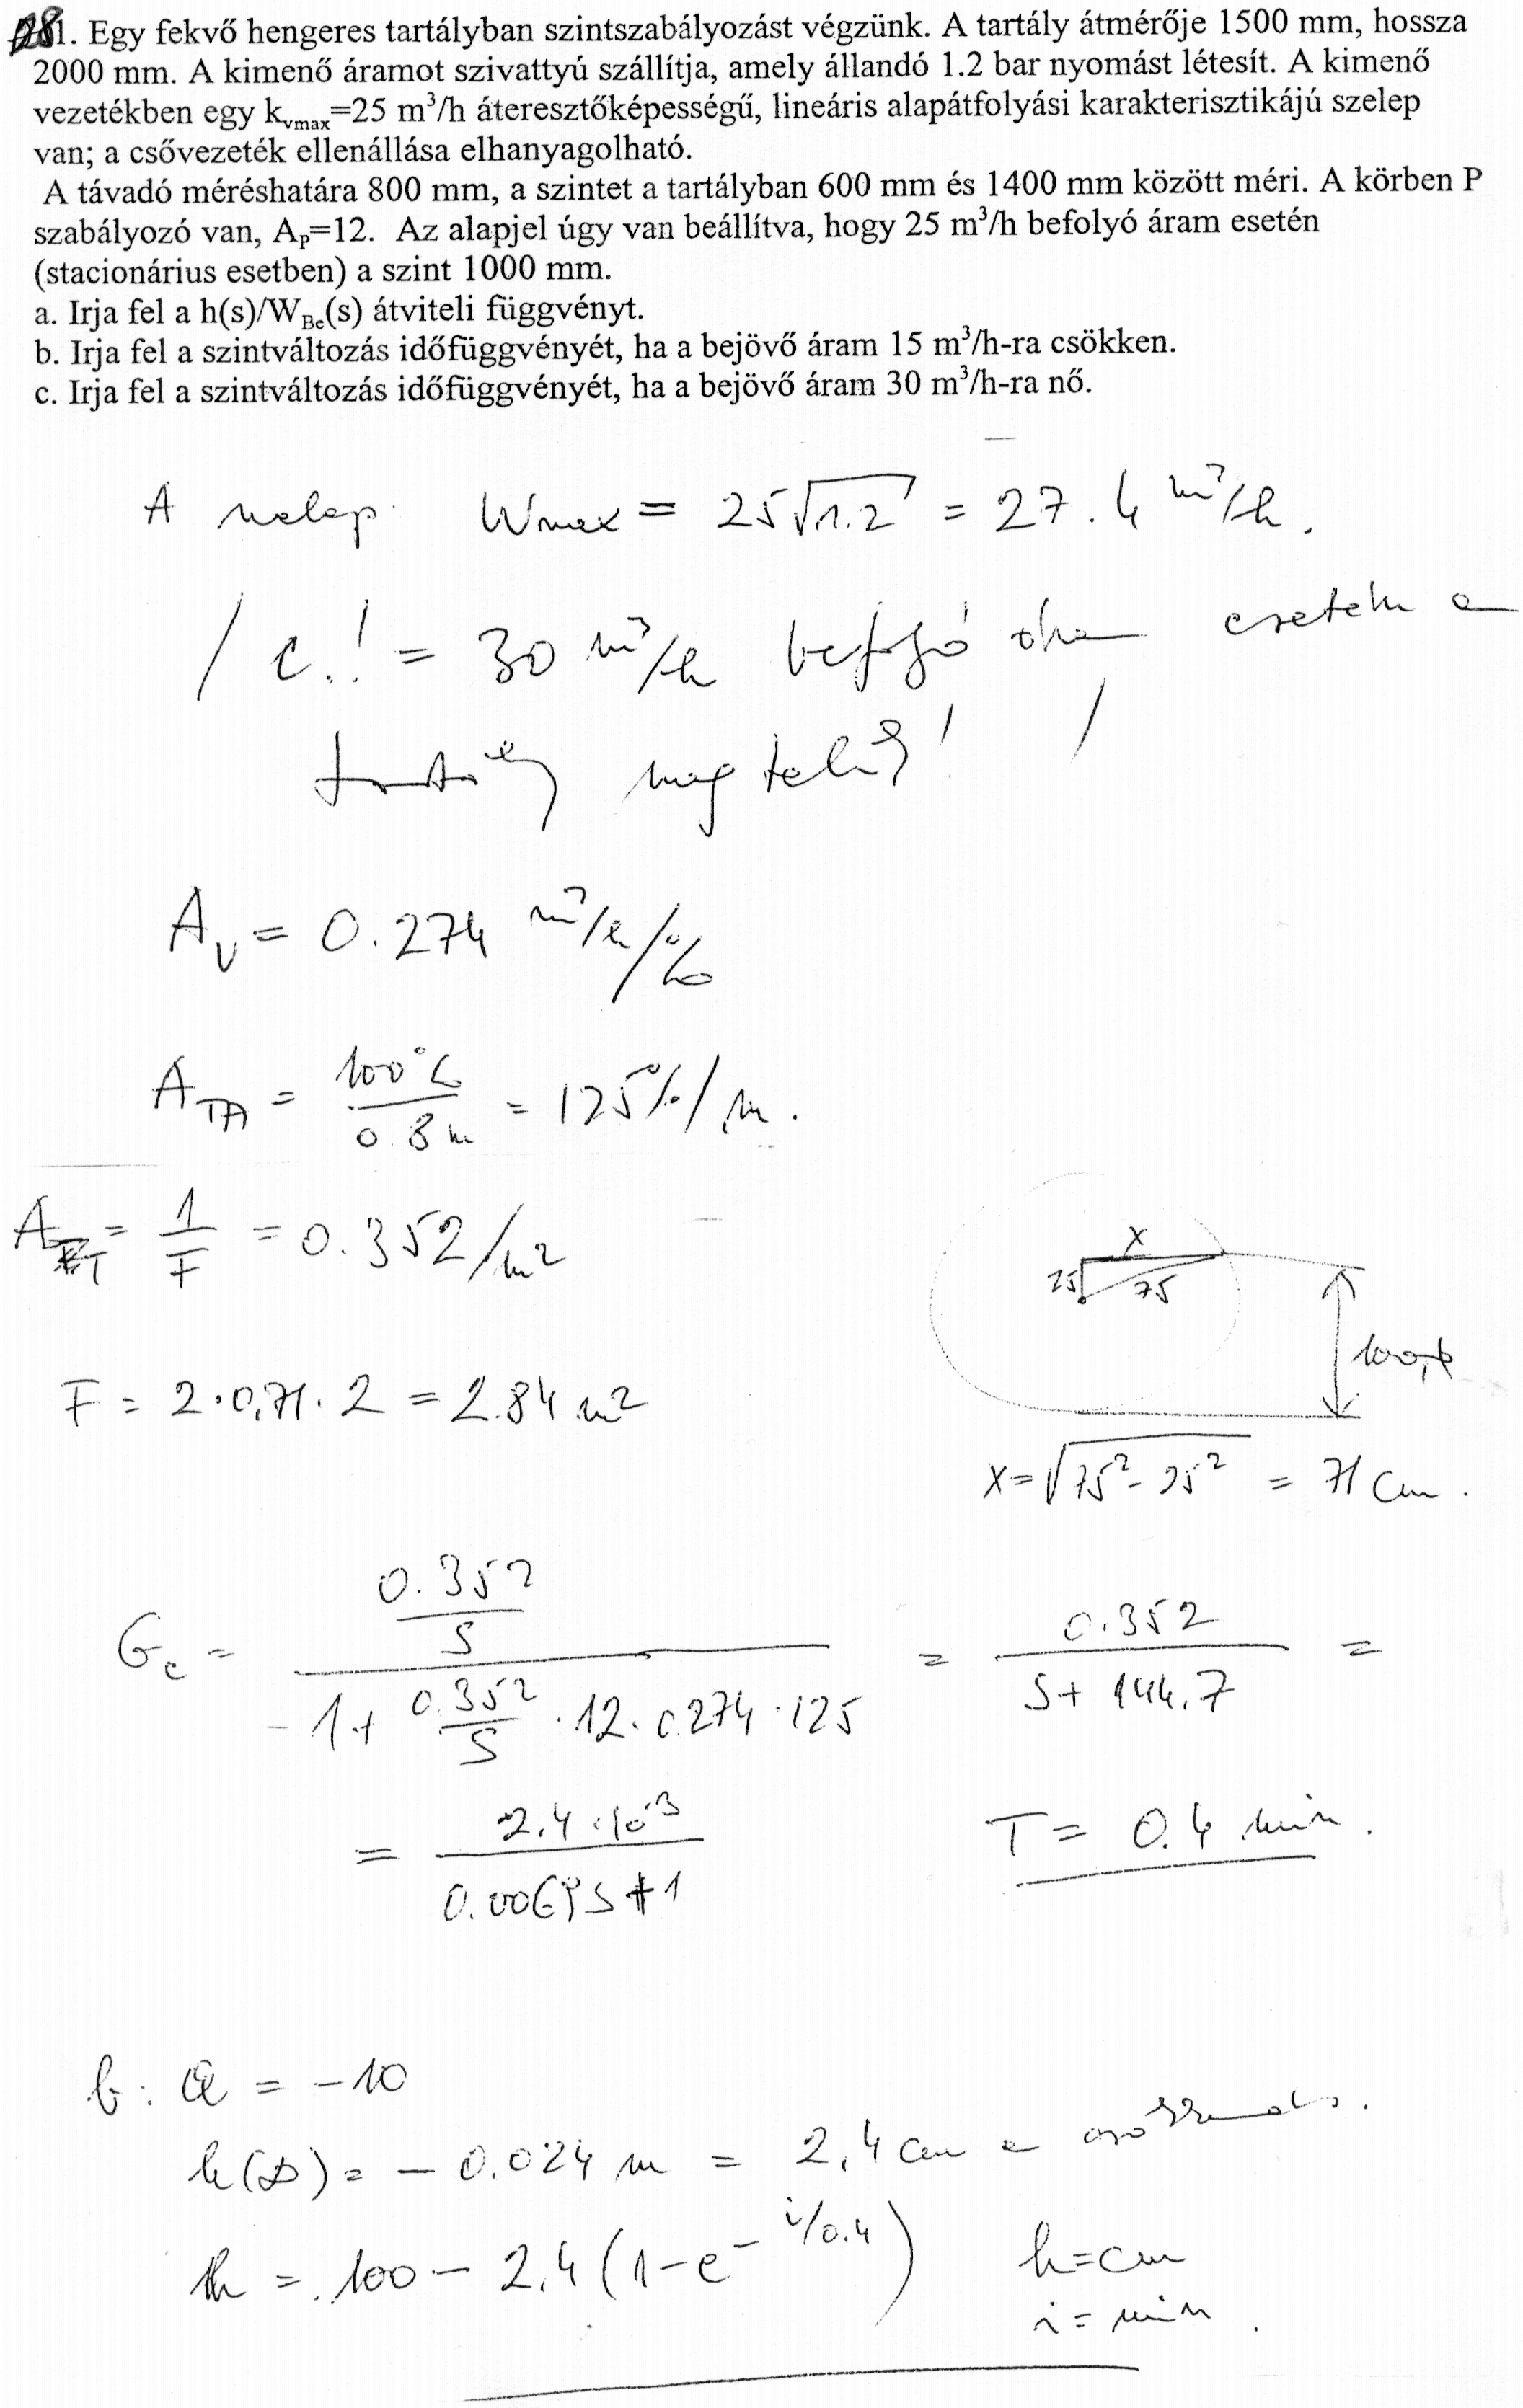 281. Egy fekvő hengeres tartályban szintszabályozást végzünk. A tartály átmérője 1500 mm, hossza
2000 mm. A kimenő áramot szivattyú szállítja, amely állandó 1.2 bar nyomást létesít. A kimenő
vezetékben egy kvmax=25 m³/h áteresztőképességű, lineáris alapátfolyási karakterisztikájú szelep
van; a csővezeték ellenállása elhanyagolható.
A távadó méréshatára 800 mm, a szintet a tartályban 600 mm és 1400 mm között méri. A körben P
szabályozó van, AP=12. Az alapjel úgy van beállítva, hogy 25 m³/h befolyó áram esetén
(stacionárius esetben) a szint 1000 mm.
a. Irja fel a h(s)/WBe(s) átviteli függvényt.
b. Irja fel a szintváltozás időfüggvényét, ha a bejövő áram 15 m³/h-ra csökken.
c. Irja fel a szintváltozás időfüggvényét, ha a bejövő áram 30 m³/h-ra nő.
A szelep Wmax = 25√1.2 = 27.4 m³/h.
/ c.! = 30 m³/h befolyó esetén a
tartály megtelik! /
Av = 0.274 m³/h/%
ATA = 100%/0.8m = 125%/m.
AT = 1/F = 0.352/m²
x
25 75
100
F = 2·0,71·2 = 2.84 m²
x = √75²-25² = 71 cm.
Gc = (0.352/s)/(1+ 0.352/s ·12·0.274·125) = 0.352/(s+144.7) =
= 2,4·10⁻³/(0.0069s+1) T = 0.4 min.
b: Q = -10
h(∞) = -0.024 m = 2,4 cm a
h = 100 - 2.4(1-e^-i/0.4) h=cm
i=min.